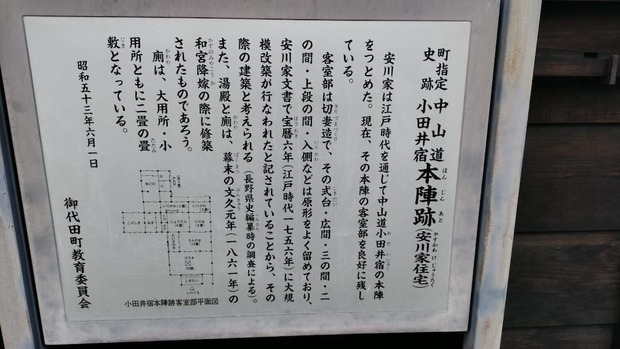 町指定
史跡
中山道
小田井宿
本陣跡(安川家住宅)
ほんじんあと
やすかわけじゅうたく
安川家は江戸時代を通じて中山道小田井宿の本陣
をつとめた。現在、その本陣の客室部を良好に残し
ている。
客室部は切妻造で、その式台・広間・三の間・二
の間・上段の間・入側などは原形をよく留めており、
安川家文書で宝暦六年(江戸時代一七五六年)に大規
模改築が行なわれたと記されていることから、その
際の建築と考えられる(長野県史編纂時の調査による)。
また、湯殿と厠は、幕末の文久元年(一八六一年)の
和宮降嫁の際に修築
されたものであろう。
厠は、大用所・小
用所ともに二畳の畳
敷となっている。
昭和五十三年六月一日
御代田町教育委員会
小田井宿本陣跡客室部平面図